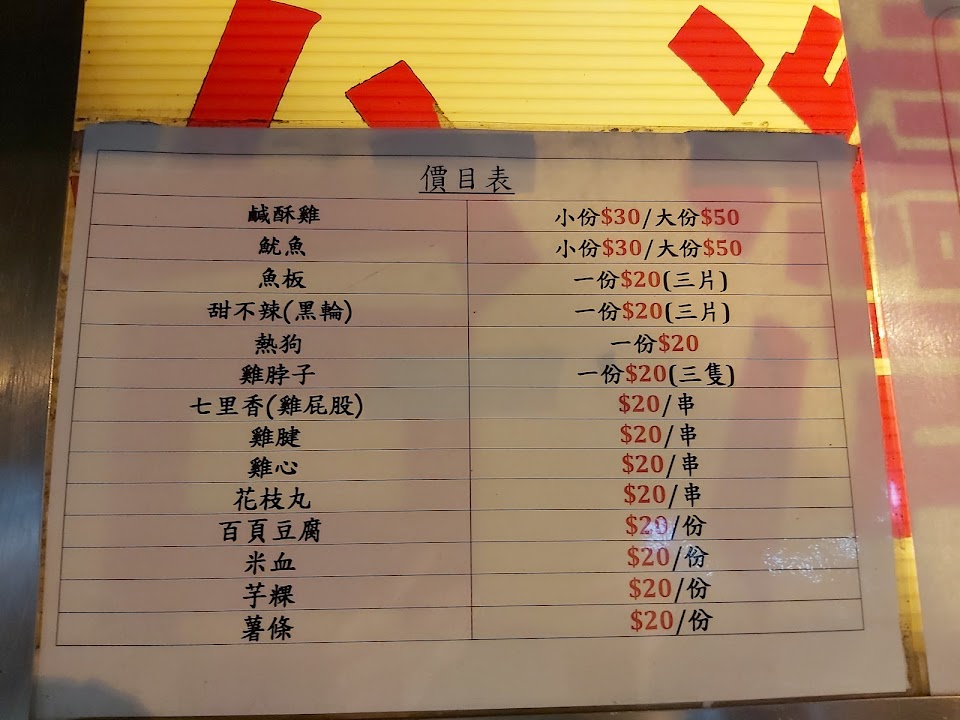 價目表
鹹酥雞 小份$30/大份$50
魷魚 小份$30/大份$50
魚板 一份$20(三片)
甜不辣(黑輪) 一份$20(三片)
熱狗 一份$20
雞脖子 一份$20(三隻)
七里香(雞屁股) $20/串
雞腱 $20/串
雞心 $20/串
花枝丸 $20/串
百頁豆腐 $20/份
米血 $20/份
芋粿 $20/份
薯條 $20/份